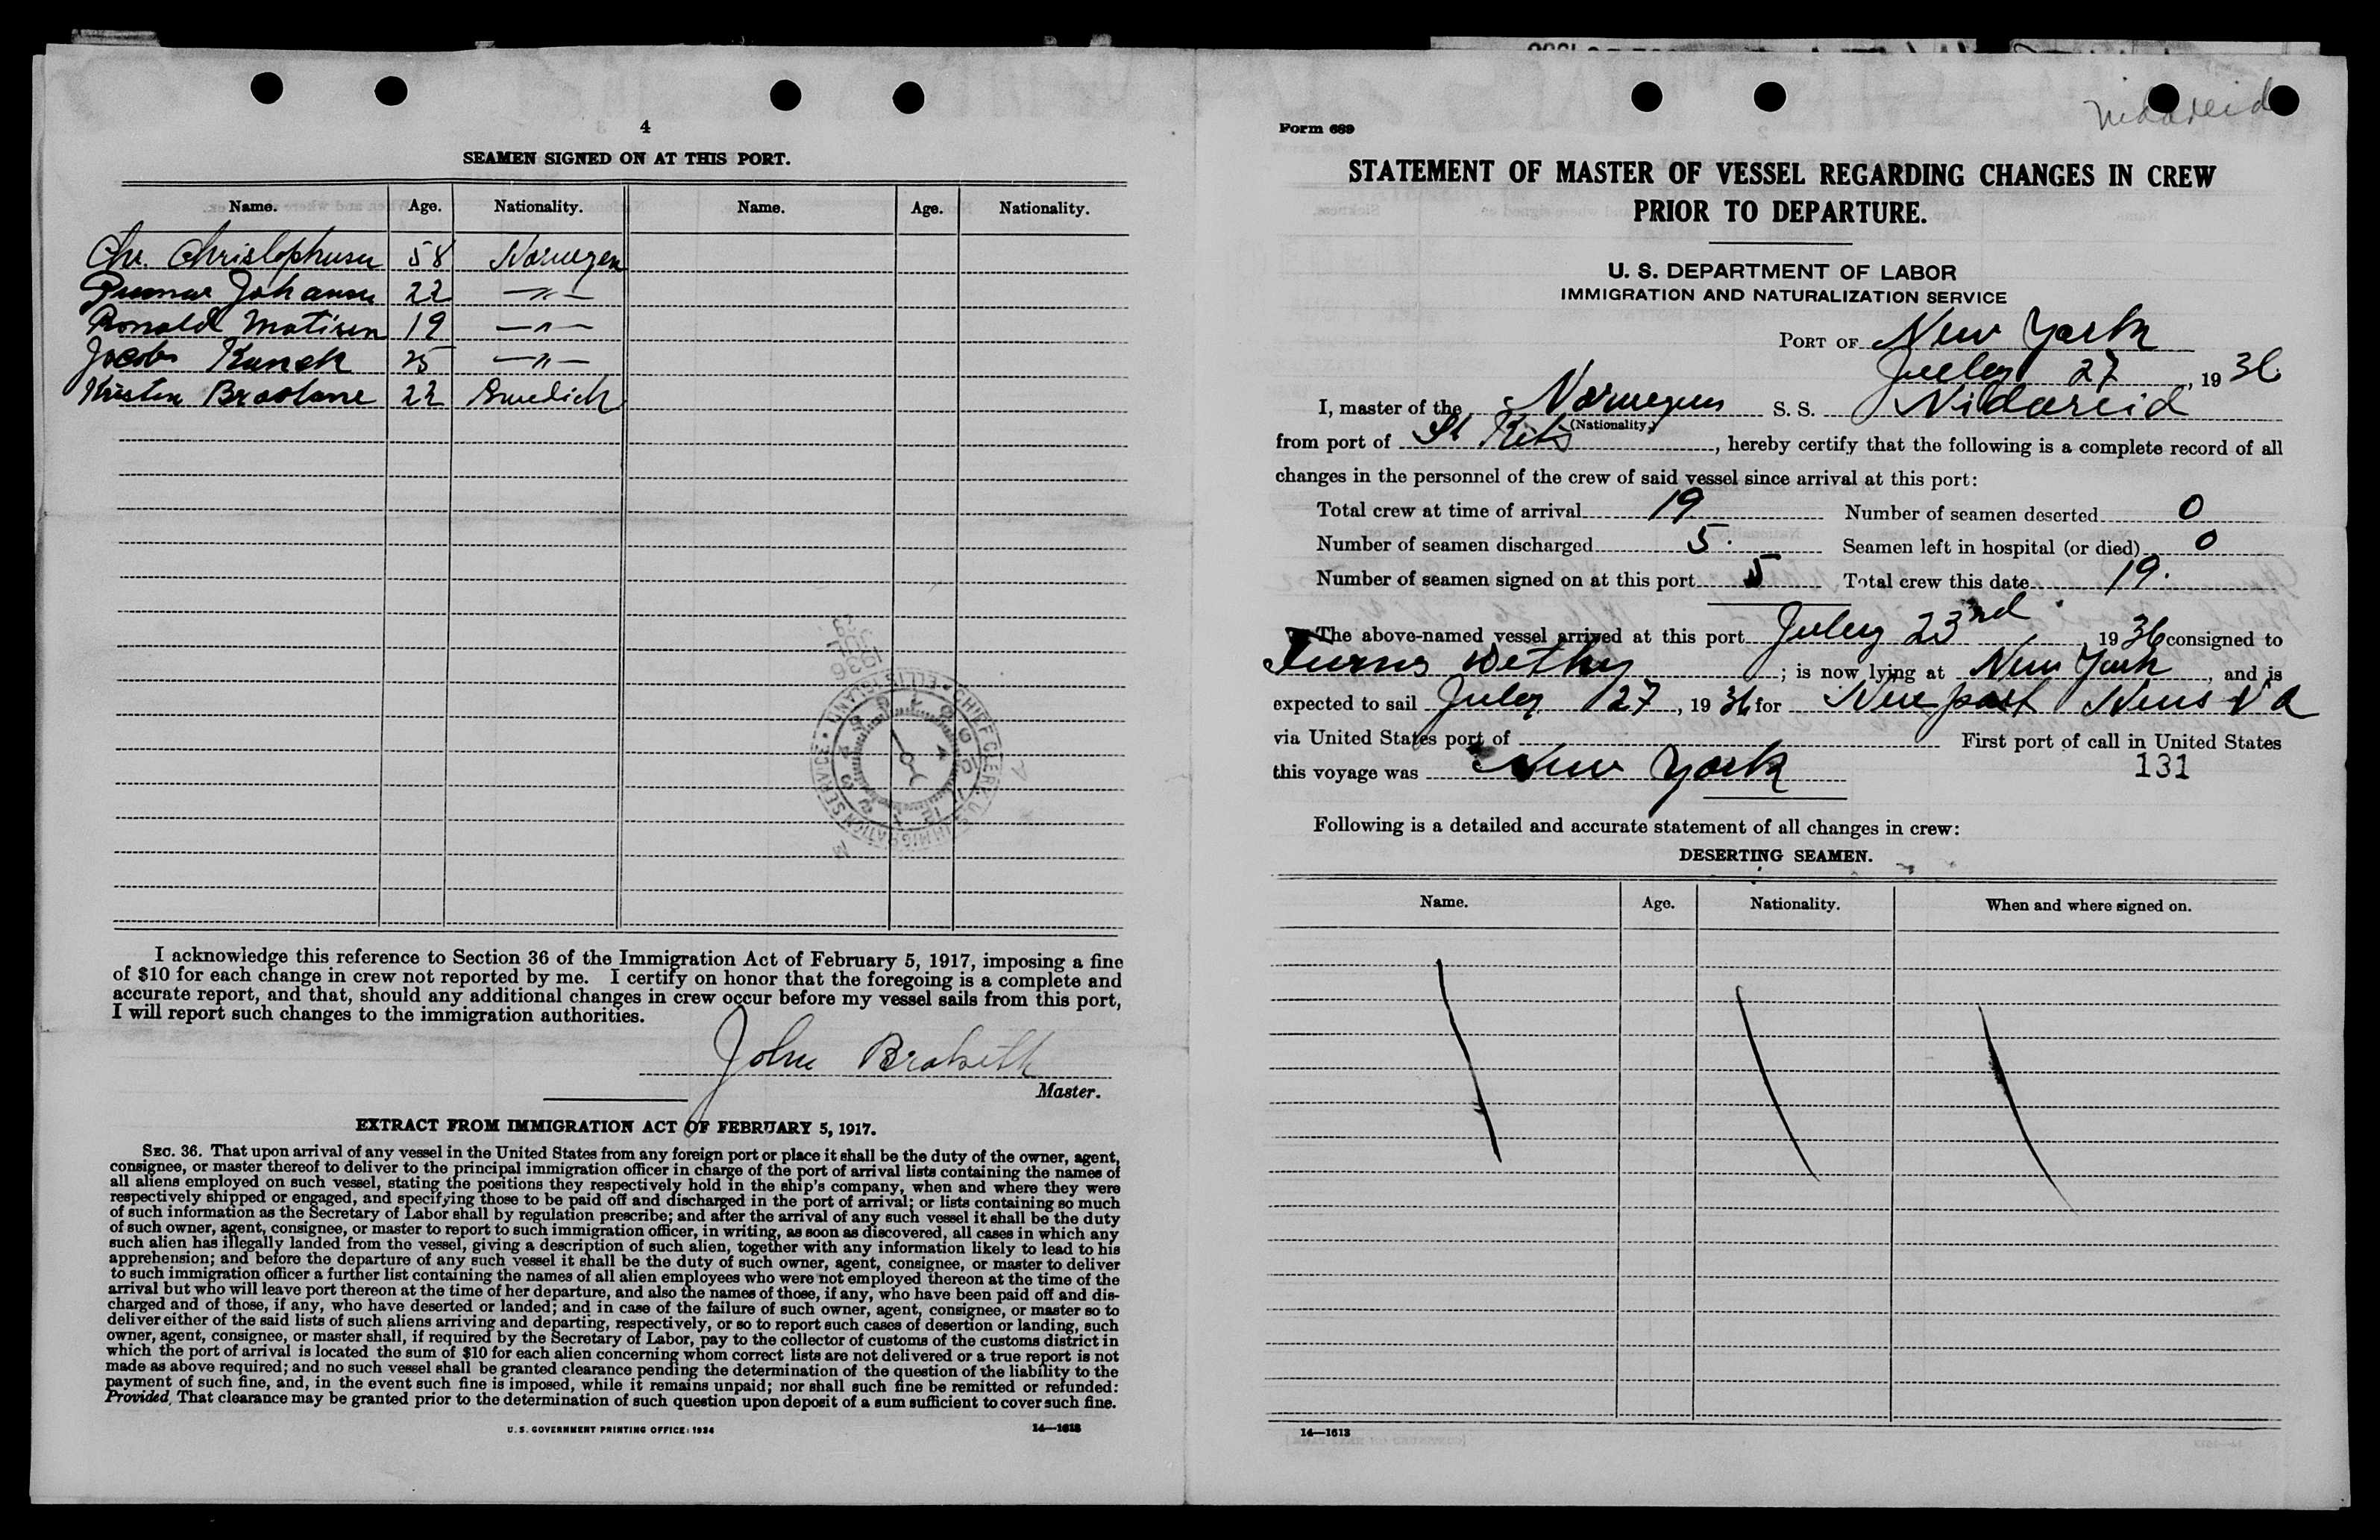 4
SEAMEN SIGNED ON AT THIS PORT.
Name. Age. Nationality. Name. Age. Nationality.
Chr. Christophersen 58 Norwegen
Johansen 22 —〃—
Ronald Matisen 19 —〃—
Jacob 25 —〃—
22 Swedich
I acknowledge this reference to Section 36 of the Immigration Act of February 5, 1917, imposing a fine
of $10 for each change in crew not reported by me. I certify on honor that the foregoing is a complete and
accurate report, and that, should any additional changes in crew occur before my vessel sails from this port,
I will report such changes to the immigration authorities.
John
Master.
EXTRACT FROM IMMIGRATION ACT OF FEBRUARY 5, 1917.
SEC. 36. That upon arrival of any vessel in the United States from any foreign port or place it shall be the duty of the owner, agent,
consignee, or master thereof to deliver to the principal immigration officer in charge of the port of arrival lists containing the names of
all aliens employed on such vessel, stating the positions they respectively hold in the ship's company, when and where they were
respectively shipped or engaged, and specifying those to be paid off and discharged in the port of arrival; or lists containing so much
of such information as the Secretary of Labor shall by regulation prescribe; and after the arrival of any such vessel it shall be the duty
of such owner, agent, consignee, or master to report to such immigration officer, in writing, as soon as discovered, all cases in which any
such alien has illegally landed from the vessel, giving a description of such alien, together with any information likely to lead to his
apprehension; and before the departure of any such vessel it shall be the duty of such owner, agent, consignee, or master to deliver
to such immigration officer a further list containing the names of all alien employees who were not employed thereon at the time of the
arrival but who will leave port thereon at the time of her departure, and also the names of those, if any, who have been paid off and dis-
charged and of those, if any, who have deserted or landed; and in case of the failure of such owner, agent, consignee, or master so to
deliver either of the said lists of such aliens arriving and departing, respectively, or so to report such cases of desertion or landing, such
owner, agent, consignee, or master shall, if required by the Secretary of Labor, pay to the collector of customs of the customs district in
which the port of arrival is located the sum of $10 for each alien concerning whom correct lists are not delivered or a true report is not
made as above required; and no such vessel shall be granted clearance pending the determination of the question of the liability to the
payment of such fine, and, in the event such fine is imposed, while it remains unpaid; nor shall such fine be remitted or refunded:
Provided, That clearance may be granted prior to the determination of such question upon deposit of a sum sufficient to cover such fine.
U. S. GOVERNMENT PRINTING OFFICE: 1934 14—1613
CHIEF CLERK U.S. IMMIGRATION SERVICE • ELLIS ISLAND
JUL 1936
Nidareid
Form 689
STATEMENT OF MASTER OF VESSEL REGARDING CHANGES IN CREW
PRIOR TO DEPARTURE.
U. S. DEPARTMENT OF LABOR
IMMIGRATION AND NATURALIZATION SERVICE
PORT OF New York
July 27, 1936
I, master of the Norwegen S. S. Nidareid
(Nationality)
from port of St Kits, hereby certify that the following is a complete record of all
changes in the personnel of the crew of said vessel since arrival at this port:
Total crew at time of arrival 19 Number of seamen deserted 0
Number of seamen discharged 5. Seamen left in hospital (or died) 0
Number of seamen signed on at this port 5 Total crew this date 19.
The above-named vessel arrived at this port July 23rd, 1936 consigned to
Furns Wethy; is now lying at New York, and is
expected to sail July 27, 1936 for Newport News Va
via United States port of First port of call in United States
this voyage was New York 131
Following is a detailed and accurate statement of all changes in crew:
DESERTING SEAMEN.
Name. Age. Nationality. When and where signed on.
14—1613